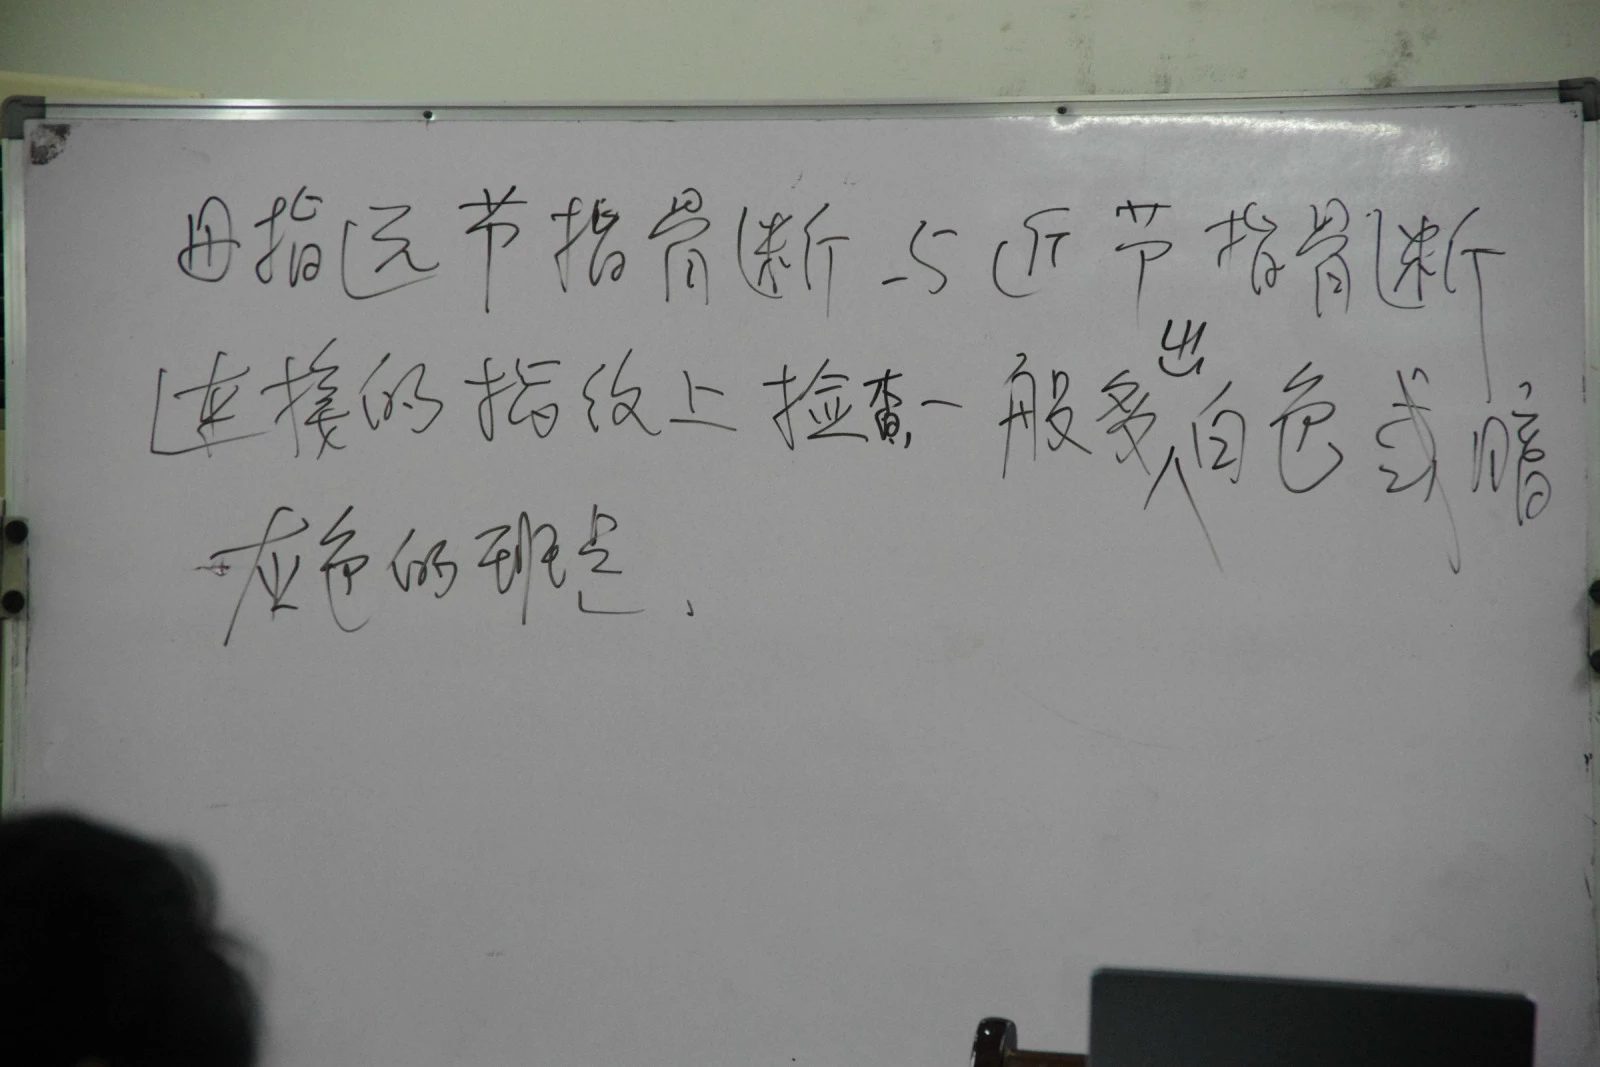 母指远节指骨断与近节指骨断
连接的指纹上检查一般多出白色或暗
灰色的班点.